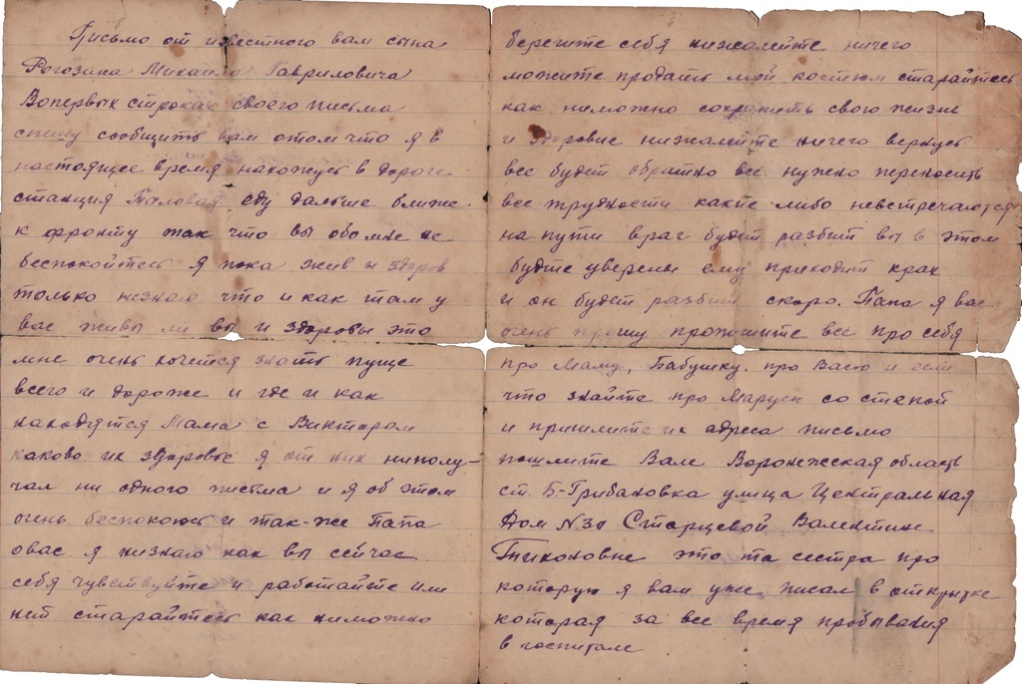 Письмо от известного вам сына
Рогозина Михаила Гавриловича
Вопервых строках своего письма
спешу сообщить вам отом что я в
настоящее время нахожусь в дороге
станция Таловая еду дальше ближе
к фронту так что вы обомне не
беспокойтесь я пока жив и здоров
только незнаю что и как там у
вас живы ли вы и здоровы это
мне очень хочется знать пуще
всего и дороже и где и как
находятся Мама с Виктором
каково их здоровье я от них ниполу-
чал ни одного письма и я об этом
очень беспокоюсь и так-же Папа
овас я низнаю как вы сейчас
себя чувствуйте и работайте или
нет старайтесь как ниможно
берегите себя нижалейте ничего
можите продать мой костюм старайтесь
как ниможно сохранить свою жизнь
и здоровие нижалейте ничего вернуть
все будет обратно все нужно переносить
все трудности какие либо невстречаются
на пути враг будет разбит вы в этом
будте уверены ему приходит крах
и он будет разбит скоро. Папа я вас
очень прошу пропишите все про себя
про Маму, Бабушку. про Васю и если
что знайте про Марусю со степой
и пришлите их адреса письмо
пошлите Вале Воронежская область
ст. Б-Грибановка улица Центральная
Дом N30 Старцевой Валентине
Тихоновне это та сестра про
которую я вам уже писал в открытке
которая за все время пробывания
в госпитале